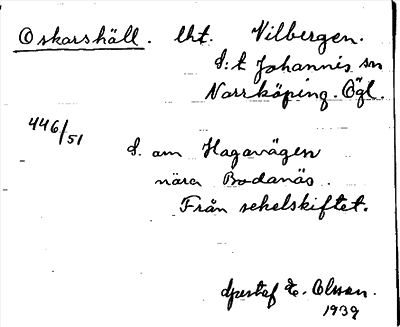 Oskarshäll. lht. Vilbergen.
S:t Johannis sn
Norrköping. Ögl.
446/51
S. om Hagavägen
nära Bodanäs.
Från sekelskiftet.
Gustaf E. Olsson.
1939